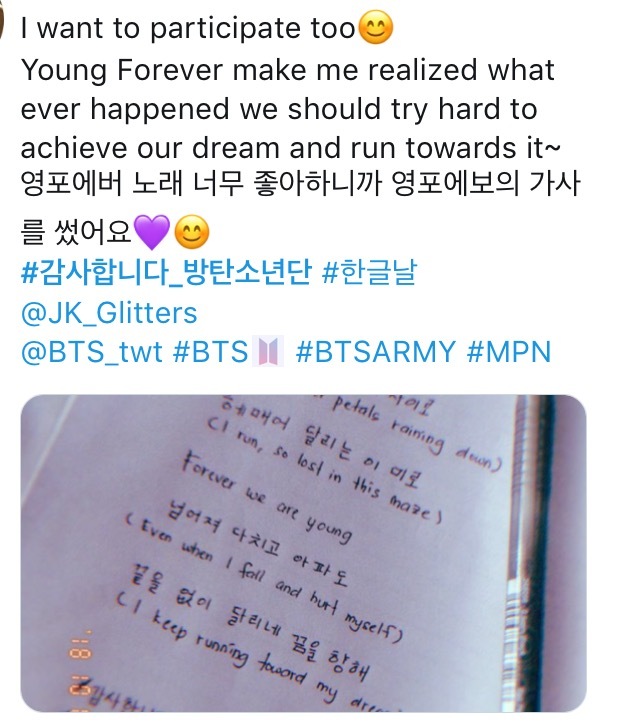 I want to participate too😊
Young Forever make me realized what
ever happened we should try hard to
achieve our dream and run towards it~
영포에버 노래 너무 좋아하니까 영포에보의 가사
를 썼어요💜😊
#감사합니다_방탄소년단 #한글날
@JK_Glitters
@BTS_twt #BTS #BTSARMY #MPN
사이로
petals raining down)
헤매어 달리는 이 미로
(I run, so lost in this maze)
Forever we are young
넘어져 다치고 아파도
(Even when I fall and hurt myself)
끝을 없이 달리네 꿈을 향해
(I keep running toward my